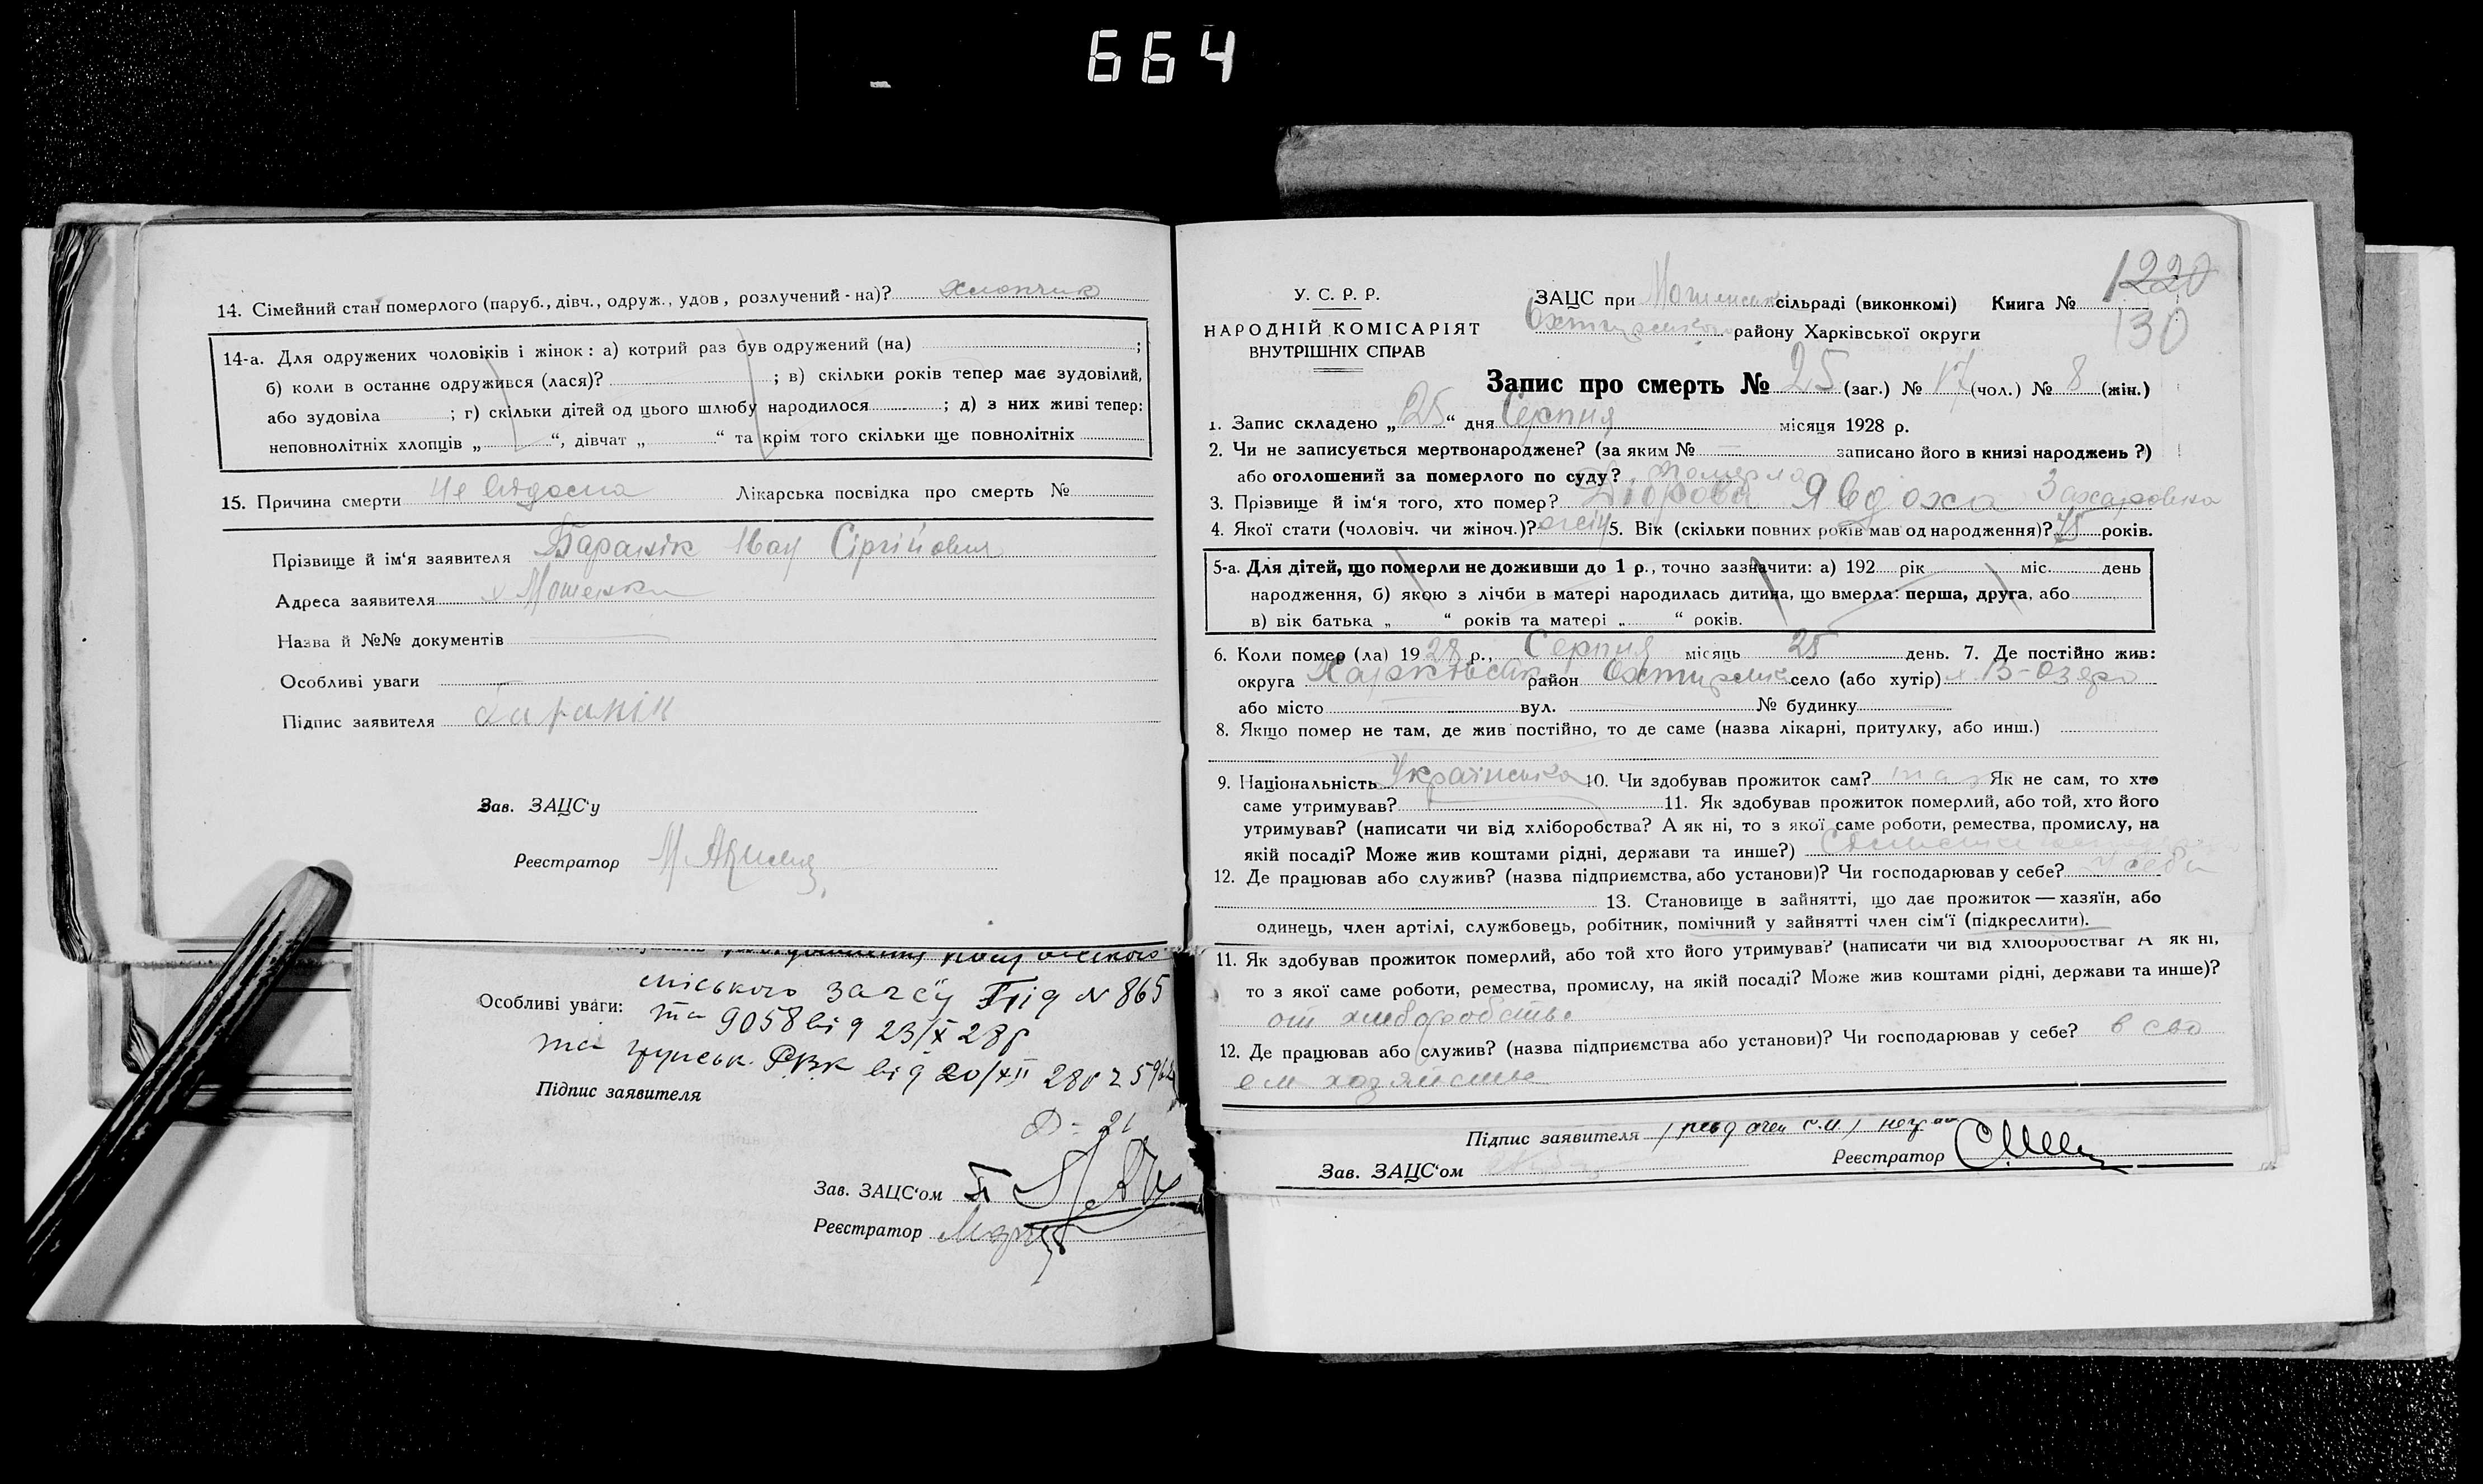 664
14. Сімейний стан померлого (паруб., дівч., одруж., удов, розлучений-на)? хлопчик
14-а. Для одружених чоловіків і жінок: а) котрий раз був одружений (на) ;
б) коли в останнє одружився (лася)? ; в) скільки років тепер має зудовілий,
або зудовіла ; г) скільки дітей од цього шлюбу народилося ; д) з них живі тепер:
неповнолітніх хлопців „ “, дівчат „ “ та крім того скільки ще повнолітніх
15. Причина смерти Лікарська посвідка про смерть №
Прізвище й ім'я заявителя Баранік Іван Сіргійович
Адреса заявителя х Мошенки
Назва й №№ документів
Особливі уваги
Підпис заявителя Баранік
Зав. ЗАЦС'у
Реєстратор
міського загсу Під N 865
Особливі уваги: та 9058 від 23/X 28р
та РВК від 20/XII 28р
Підпис заявителя
Зав. ЗАЦС'ом
Реєстратор
1220
130
У. С. Р. Р.
НАРОДНІЙ КОМІСАРІЯТ
ВНУТРІШНІХ СПРАВ
ЗАЦС при сільраді (виконкомі) Книга №
Охтирського району Харківської округи
Запис про смерть № 25 (заг.) № 17 (чол.) № 8 (жін.)
1. Запис складено „25“ дня Серпня місяця 1928 р.
2. Чи не записується мертвонароджене? (за яким № записано його в книзі народжень ?)
або оголошений за померлого по суду? померла
3. Прізвище й ім'я того, хто помер? Явдоха Захаровна
4. Якої стати (чоловіч. чи жіноч.)? 5. Вік (скільки повних років мав од народження)? років.
5-а. Для дітей, що померли не доживши до 1 р., точно зазначити: а) 192 рік міс. день
народження, б) якою з лічби в матері народилась дитина, що вмерла: перша, друга, або
в) вік батька „ “ років та матері „ “ років.
6. Коли помер (ла) 1928 р., Серпня місяць 25 день. 7. Де постійно жив:
округа Харківськ район Охтирськ село (або хутір) х. В-Озеро
або місто вул. № будинку
8. Якщо помер не там, де жив постійно, то де саме (назва лікарні, притулку, або инш.)
9. Національність Українська 10. Чи здобував прожиток сам? так Як не сам, то хто
саме утримував? 11. Як здобував прожиток померлий, або той, хто його
утримував? (написати чи від хліборобства? А як ні, то з якої саме роботи, ремества, промислу, на
якій посаді? Може жив коштами рідні, держави та инше?)
12. Де працював або служив? (назва підприємства, або установи)? Чи господарював у себе? у себи
13. Становище в зайнятті, що дає прожиток — хазяїн, або
одинець, член артілі, службовець, робітник, помічний у зайнятті член сім'ї (підкреслити).
11. Як здобував прожиток померлий, або той хто його утримував? (написати чи від хліборобства? А як ні,
то з якої саме роботи, ремества, промислу, на якій посаді? Може жив коштами рідні, держави та инше)?
от хлеборобства
12. Де працював або служив? (назва підприємства або установи)? Чи господарював у себе? в сво
ем хазяйстве
Підпис заявителя
Зав. ЗАЦС'ом Реєстратор